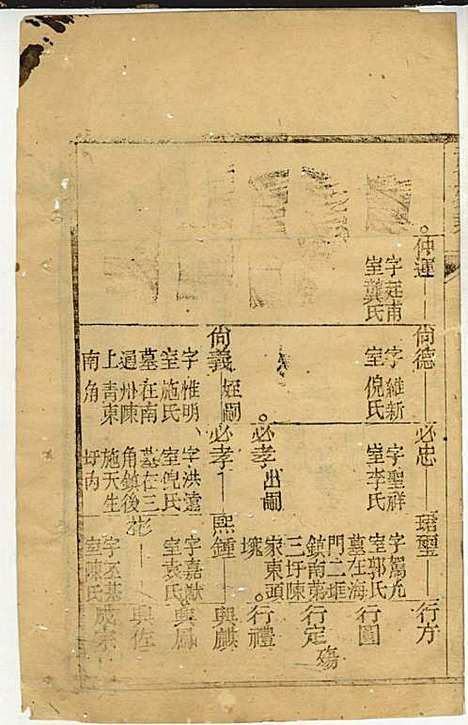 仲運
字廷甫
室龔氏
尚德
字維新
室倪氏
必忠
字聖祥
室李氏
珺璽
字駕尤
室郭氏
墓在海
門二埕
鎮南第
三圩陳
家東頭
壙
行方
行圓
行定
殤
行禮
必孝出嗣
尚義
姪嗣
字惟明
室施氏
墓在南
通州陳
上青東
南角
必孝
字洪遠
室倪氏
墓在三
角鎮後
施天生
圩内
熙鍾
字嘉猷
室袁氏
彬
字丕基
室陳氏
興麒
興鳳
興佐
成宗